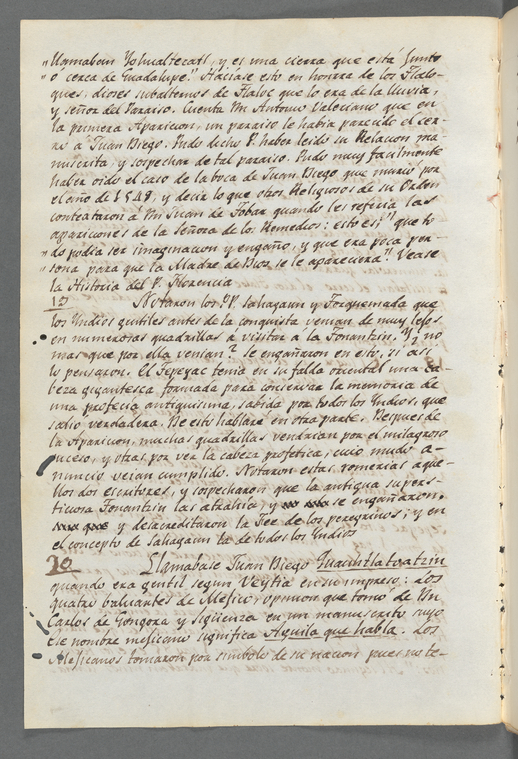 "llamaban Yohualtecatl, y es una cierra que está junto
"ó cerca de Guadalupe." Haciase esto en honrra de los Tlalo-
ques, dioses subalternos de Tlaloc que lo era de la lluvia,
y señor del Paraiso. Cuenta Dn Antonio Valeriano que en
la primera Aparicion, un paraiso le habia parecido el cer-
ro á Juan Diego. Pudo dicho P. haber leido su Relacion ma-
nuscrita, y sospechar de tal paraiso. Pudo muy facilmente
haber oido el caso de la boca de Juan Diego que murió por
el año de 1548, y decir lo que otros Religiosos de su Orden
contextaron á Dn Juan de Tobar quando les referia las
apariciones de la Señora de los Remedios: esto es, "que to-
"do podia ser imaginacion y engaño, y que era poca per-
"sona para que la Madre de Dios se le apareciera." Vease
la Historia del P. Florencia
19 Notaron los PP. Sahagun y Torquemada que
los Yndios gentiles antes de la conquista venian de muy lejos,
en numerosas quadrillas á visitar á la Tonantzin. Y no
mas que por ella venian? Se engañaron en esto, si así
lo pensaron. El Tepeyac tenia en su falda oriental una ca-
beza gigantesca, formada para conservar la memoria de
una profecía antiquisima, sabida por todos los Yndios, que
salió verdadera. De esto hablaré en otra parte. Despues de
la Aparicion, muchas quadrillas vendrian por el milagroso
suceso, y otras por ver la caveza profetica, cuio mudo a-
nuncio veian cumplido. Notaron estas romerias aque-
llos dos escritores, y sospecharon que la antigua supers-
ticiosa Tonantzin las atrahia, y se engañaron,
y desacreditaron la Fee de los peregrinos; y en
el concepto de Sahagun la de todos los Yndios
20 Llamabase Juan Diego Quauhtlatoatzin
quando era gentil segun Veytia en su impreso: Los
quatro baluartes de Mexico; opinion que tomó de Dn
Carlos de Gongora y Sigüenza en un manuscrito suyo
Ese nombre mexicano significa Aguila que habla. Los
Mexicanos tomaron por simbolo de su nacion pues no te-